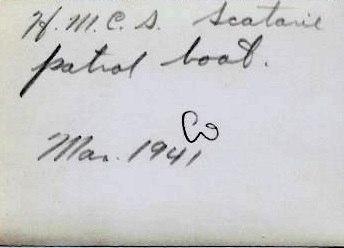 H.M.C.S. Scatarie
patrol boat.
Mar. 1941